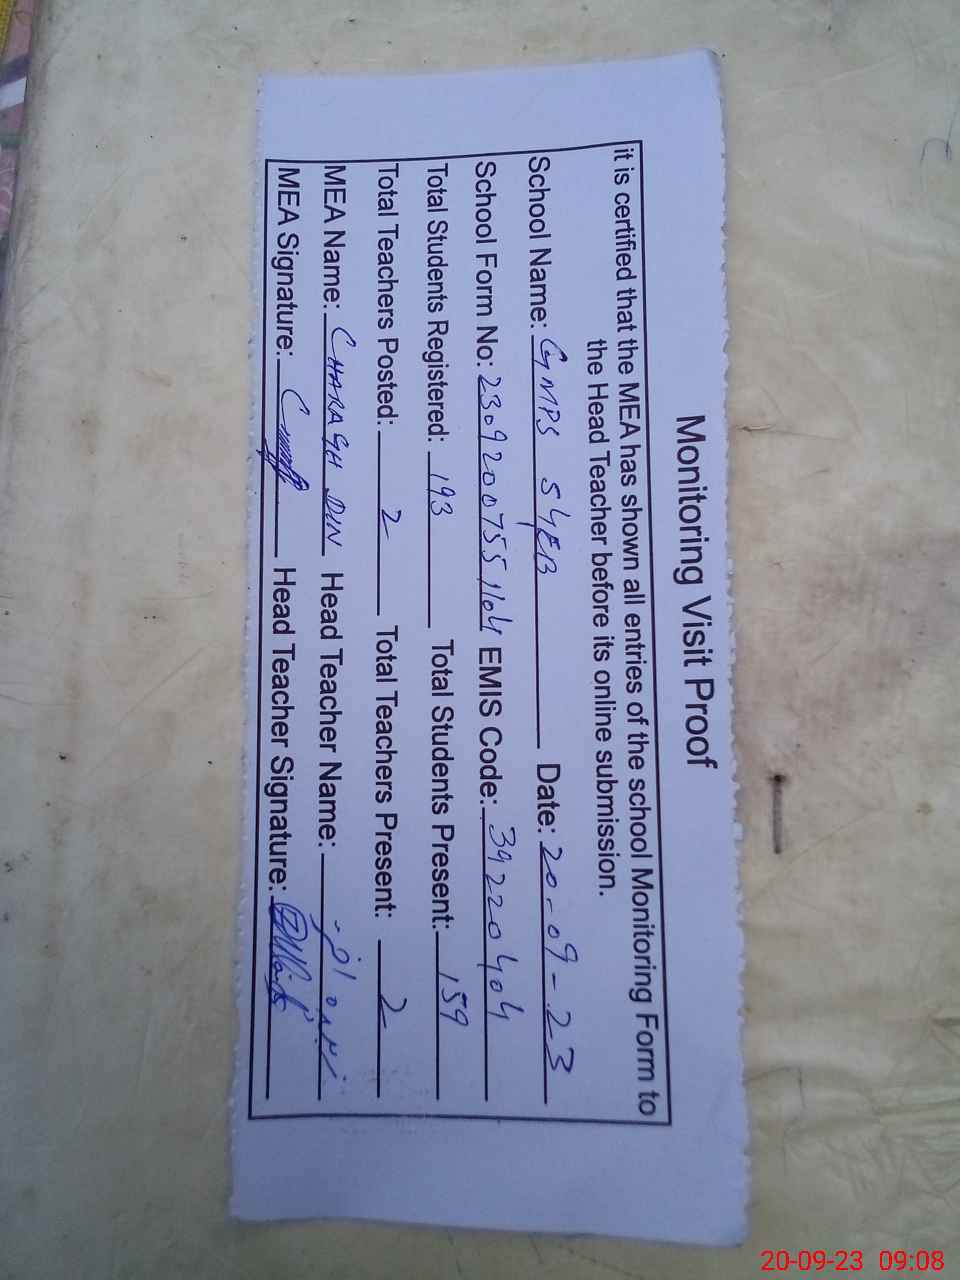 Monitoring Visit Proof
it is certified that the MEA has shown all entries of the school Monitoring Form to
the Head Teacher before its online submission.
School Name: GMPS SYEB Date: 20-09-23
School Form No: 2309200755 1104 EMIS Code: 39220404
Total Students Registered: 193 Total Students Present: 159
Total Teachers Posted: 2 Total Teachers Present: 2
MEA Name: CHARAGH DIN Head Teacher Name:
MEA Signature: Head Teacher Signature:
20-09-23 09:08